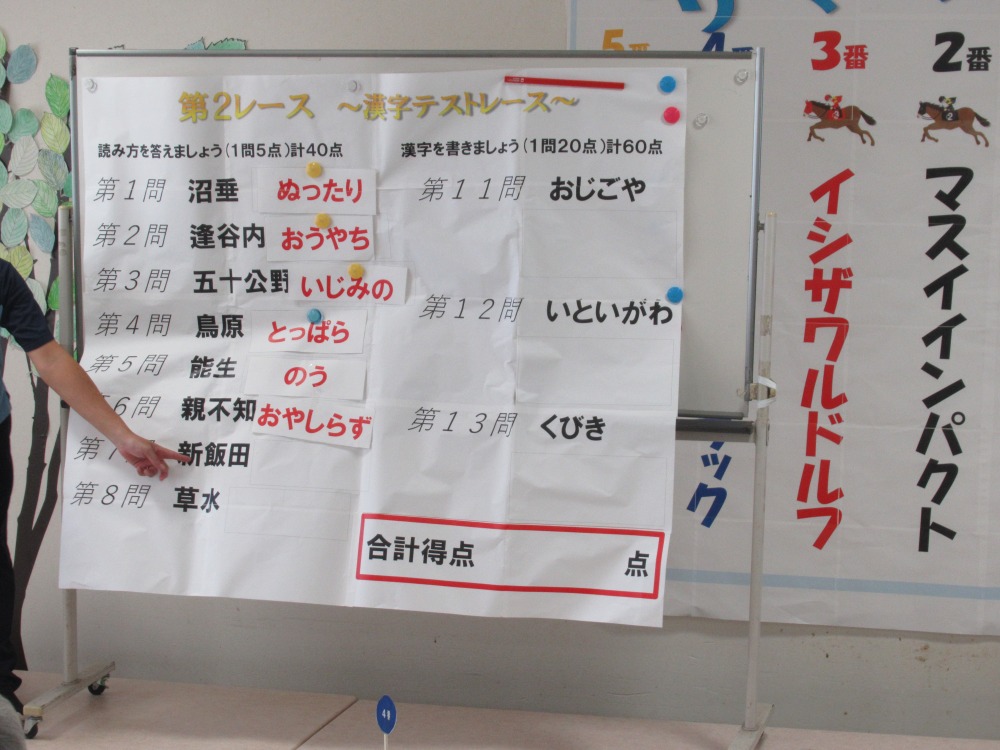 第2レース ～漢字テストレース～
読み方を答えましょう(1問5点)計40点
第1問 沼垂 ぬったり
第2問 逢谷内 おうやち
第3問 五十公野 いじみの
第4問 鳥原 とっぱら
第5問 能生 のう
第6問 親不知 おやしらず
第7 新飯田
第8問 草水
漢字を書きましょう(1問20点)計60点
第11問 おじごや
第12問 いといがわ
第13問 くびき
合計得点 点
5番
4番
3番
イシザワルドルフ
2番
マスイイインパクト
ック